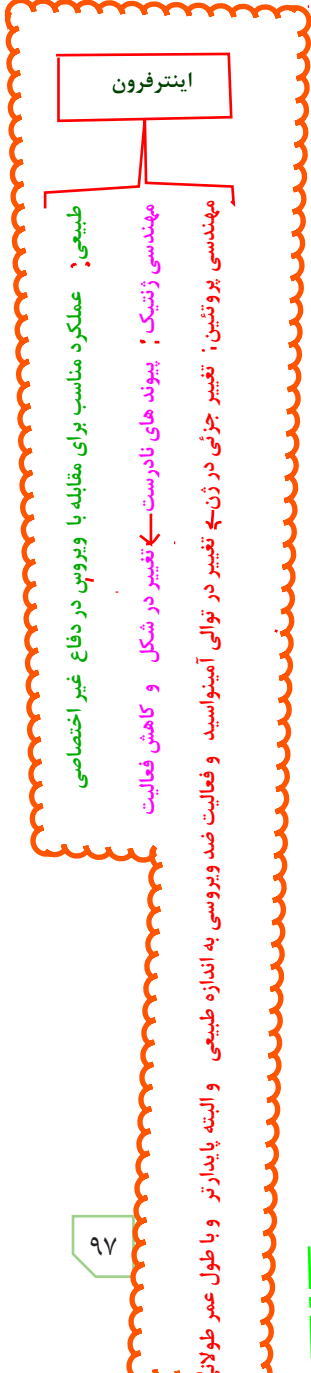 اینترفرون
طبیعی: عملکرد مناسب برای مقابله با ویروس در دفاع غیر اختصاصی
مهندسی ژنتیک: پیوند های نادرست ← تغییر در شکل و کاهش فعالیت
مهندسی پروتئین: تغییر جزئی در ژن ← تغییر در توالی آمینواسید و فعالیت ضد ویروسی به اندازه طبیعی و البته پایدارتر و با طول عمر
۹۷